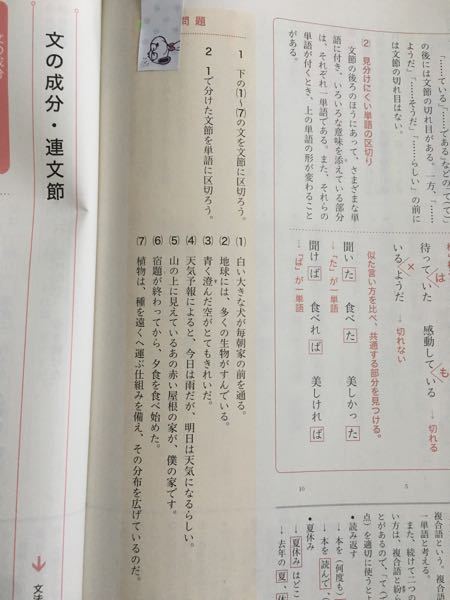 「……ている」「……である」などの「て(で)」
の後には文節の切れ目がある。一方、「……
ようだ」「……そうだ」「……らしい」の前に
は文節の切れ目はない。
② 見分けにくい単語の区切り
文節の後ろのほうにあって、さまざまな単
語に付き、いろいろな意味を添えている部分
は、それぞれ一単語である。また、それらの
単語が付くとき、上の単語の形が変わること
がある。
は
待って/いた
も
感動して/いる
→ 切れる
×
いる/ようだ
→ 切れない
似た言い方を比べ、共通する部分を見つける。
聞いた 食べた 美しかった
→「た」が一単語
聞けば 食べれば 美しければ
→「ば」が一単語
10
5
複合語という。複
一単語と考える。
また、続けて二つの
い方は、複合語と紛ら
とがあるので、「て、(
点)を適切に使うとよ
●読み返す
→本を(何度も)
→本を読んで(
●夏休み
→夏休みはどこ
→去年の夏、(休
問題
1 下の⑴〜⑺の文を文節に区切ろう。
2 1で分けた文節を単語に区切ろう。
⑴ 白い大きな犬が毎朝家の前を通る。
⑵ 地球には、多くの生物がすんでいる。
⑶ 青く澄んだ空がとてもきれいだ。
⑷ 天気予報によると、今日は雨だが、明日は天気になるらしい。
⑸ 山の上に見えているあの赤い屋根の家が、僕の家です。
⑹ 宿題が終わってから、夕食を食べ始めた。
⑺ 植物は、種を遠くへ運ぶ仕組みを備え、その分布を広げているのだ。
文の成分・連文節
↓ 文法